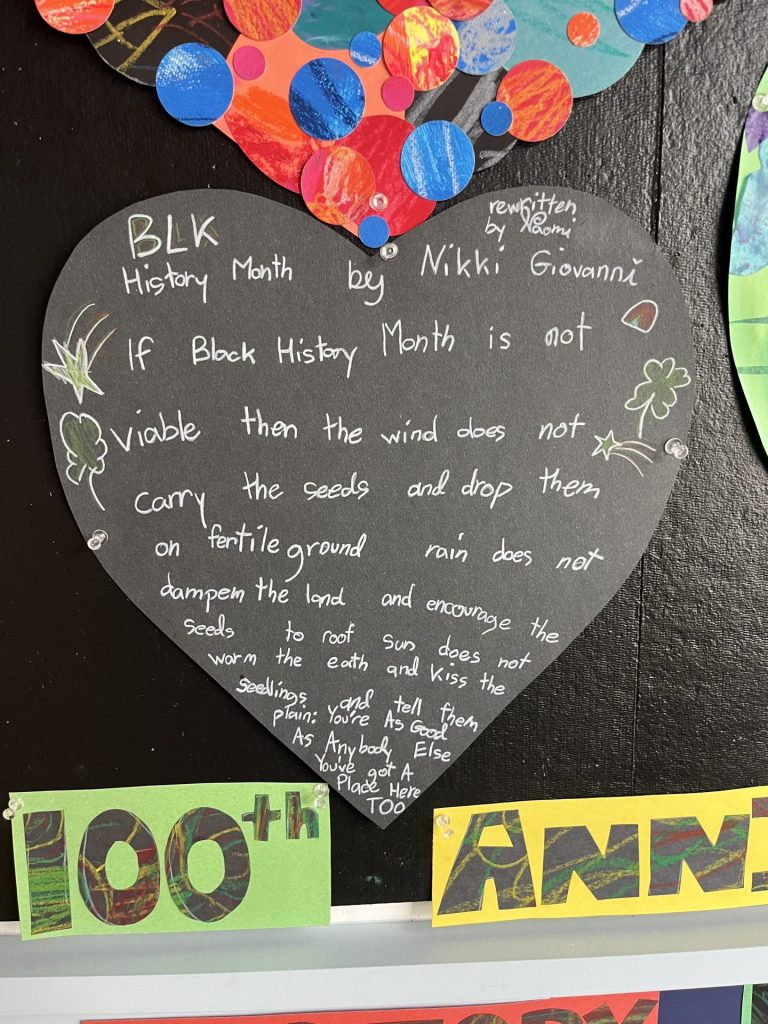 BLK
rewritten
by Naomi
History Month by Nikki Giovanni
If Black History Month is not
viable then the wind does not
carry the seeds and drop them
on fertile ground rain does not
dampem the land and encourage the
seeds to root sun does not
warm the eath and kiss the
seedlings and tell them
plain: You're As Good
As Anybody Else
You've got A
Place Here
TOO
100th ANNI